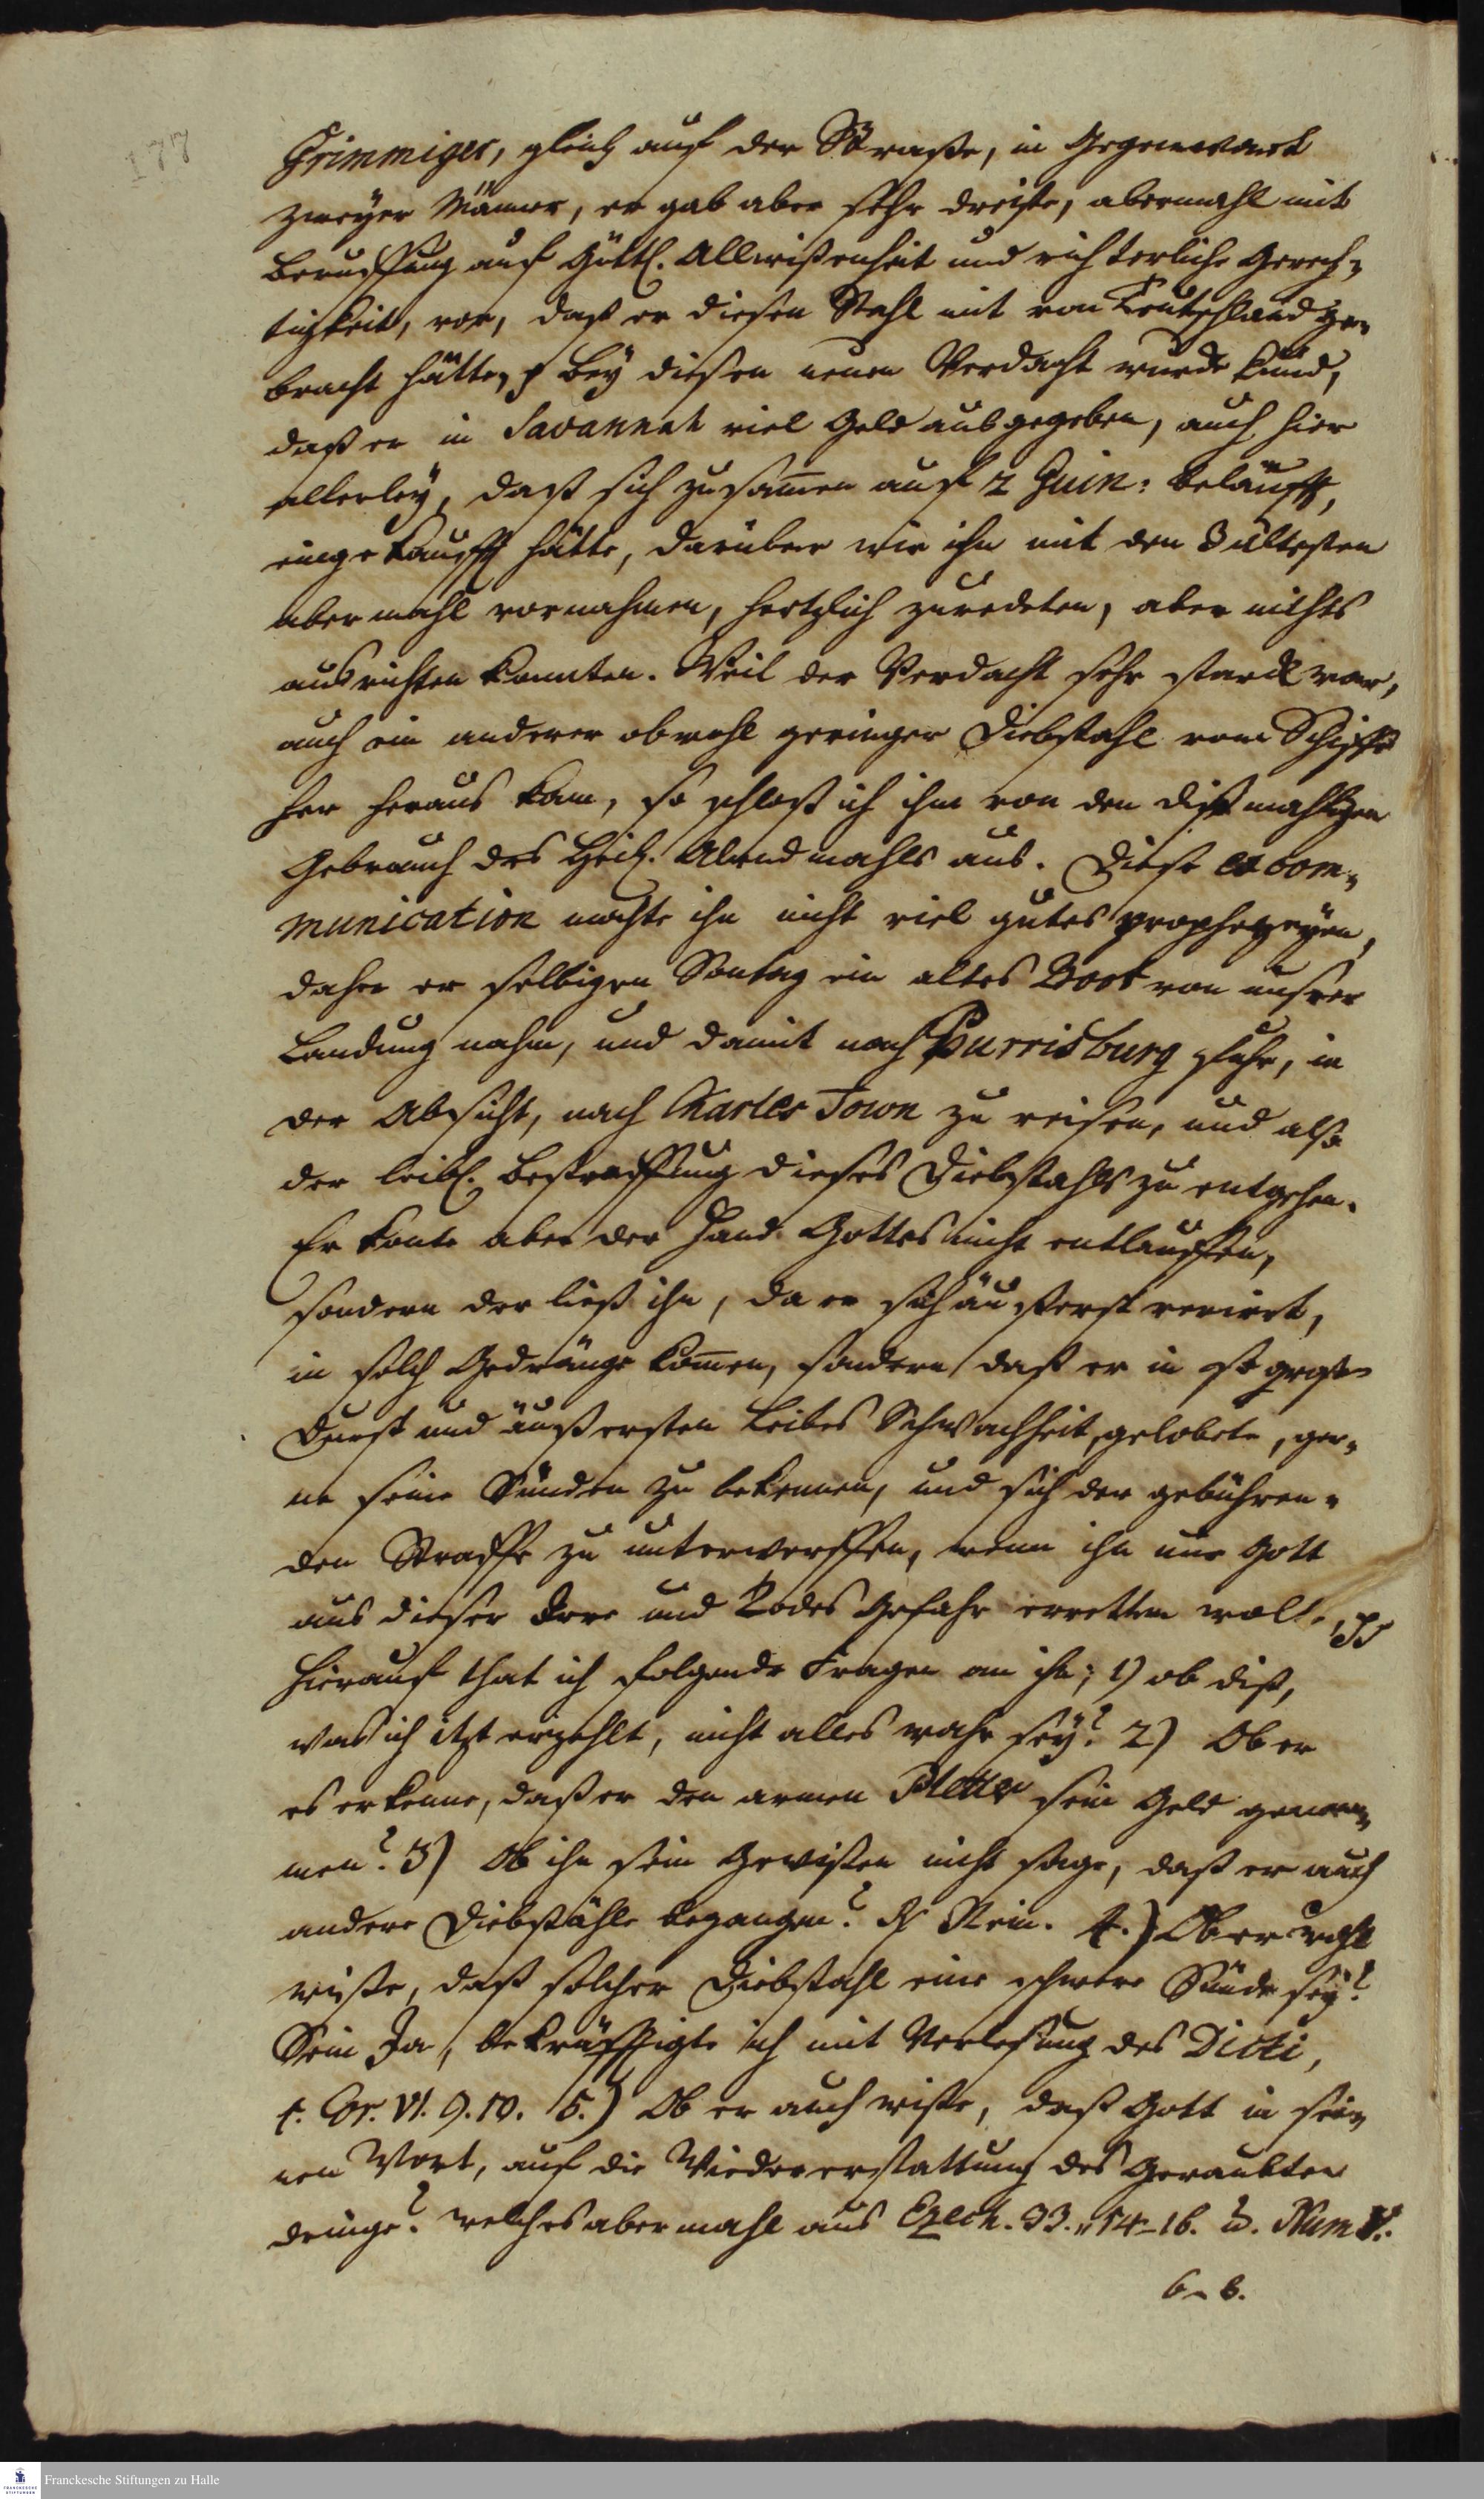 177
Grimmiger, gleich auf der Straße, in Gegenwart
zweyer Männer, er gab aber sehr dreiste, abermahl mit
Beruffung auf Göttl. Allwißenheit und richterliche Gerech-
tigkeit, vor, daß er diesen Stahl mit von Teutschland ge-
bracht hätte, Bey diesen neuen Verdacht wurde kund,
daß er in Savannah viel Geld ausgegeben, auch hier
allerley, daß sich zusamen auf 2 Guin: beläufft,
eingekaufft hätte, darüber wir ihn mit den 3 ältesten
abermahl vornahmen, hertzlich zuredeten, aber nichts
ausrichten konnten. Weil der Verdacht sehr starck war,
auch ein anderer obwohl geringer Diebstahl vom Schiffe
her heraus kam, so schloß ich ihm von den dißmahligen
Gebrauch des Heil. Abendmahls aus. Diese excom-
munication mochte ihn nicht viel gutes prophezeyen,
daher er selbigen Sontag ein altes Boot von unsrer
Landung nahm, und damit nach Purrisburg fuhr, in
der Absicht, nach Charles Town zu reisen, und also
der leibl. Bestraffung dieses Diebstahls zu entgehen.
Er konte aber der Hand Gottes nicht entlauffen,
sondern der ließ ihn, da er sich äußerst verirrt,
in solch Gedränge komen, sondern daß er in so großen
Durst und äußersten Leibes Schwachheit, gelobete, ger-
ne seine Sünden zu bekennen, und sich der gebühren-
den Straffe zu unterwerffen, wenn ihn nur Gott
aus dieser Irre und Todes Gefahr erretten wolte,
Hierauf that ich folgende Fragen an ihn; 1) ob diß,
was ich itzt erzehlt, nicht alles wahr sey? 2) Ob er
es erkenne, daß er den armen Pletter sein Geld genom-
men? 3) Ob ihn sein Gewißen nicht sage, daß er auch
andere Diebstähle begangen? Nein. 4.) Ob er wohl
wiße, daß solcher Diebstahl eine schwere Sünde sey?
Sein Ja, bekräfftigte ich mit Verlesung des Dicti,
1. Cor. VI. 9. 10. 5.) Ob er auch wiße, daß Gott in sei-
nen Wort, auf die Wiedererstattung des Geraubten
dringe? welches abermahl aus Ezech. 33. 14-16. u. Num V.
6-8.
Franckesche Stiftungen zu Halle